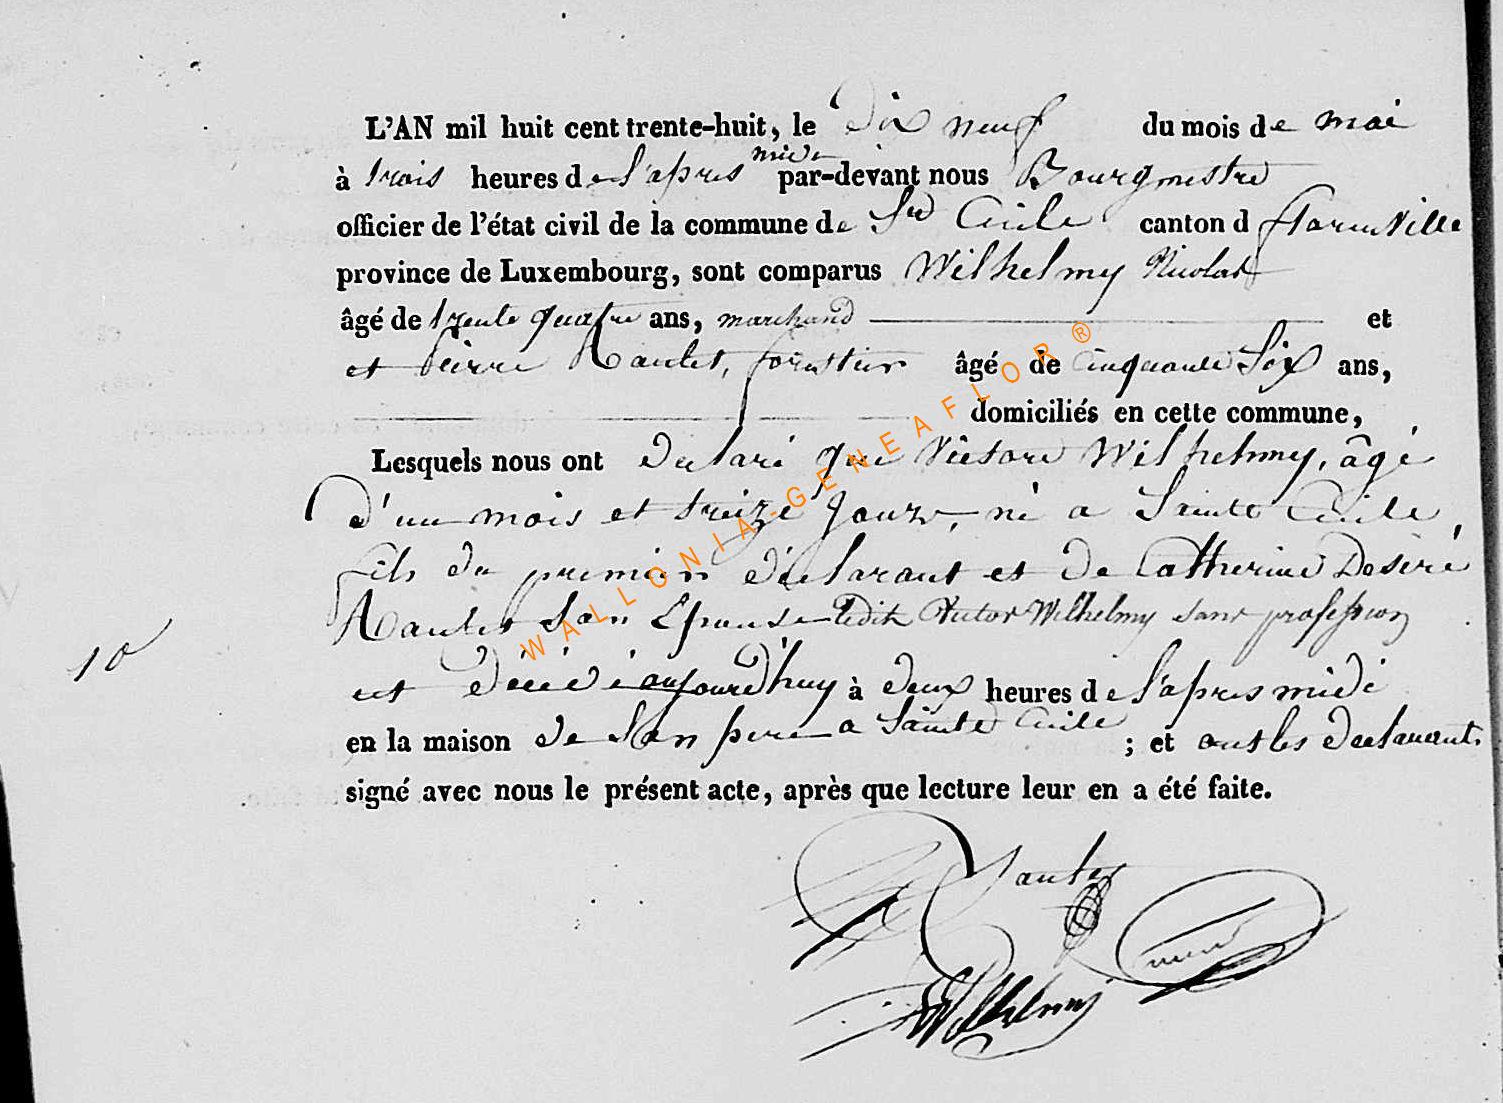 L'AN mil huit cent trente-huit, le dix neuf du mois de mai
à trois heures de l'apres midi par-devant nous Bourgmestre
officier de l'état civil de la commune de Ste Cicile canton d florenville
province de Luxembourg, sont comparus Wilhelmy Nicolas
âgé de trente quatre ans, marchand et
et Pierre Rautet, forestier âgé de cinquante Six ans,
domiciliés en cette commune,
Lesquels nous ont declaré que Victore Wilhelmy, âgé
d'un mois et treize jours, né a Sainte Cicile,
fils du premier déclarant et de Catherine Desiré
son Epouse ledit Victor Wilhelmy sans profession
10
est décédé aujourd'huy à deux heures de l'apres midi
en la maison de son pere a Sainte Cicile ; et ont les declarants
signé avec nous le présent acte, après que lecture leur en a été faite.
Wilhelmy
WALLONIA-GENEAFLOR®